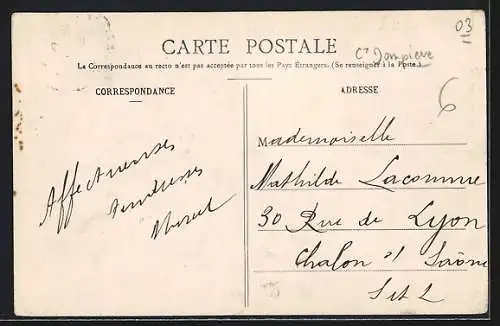 03
CARTE POSTALE
Cⁿ Dompierre
La Correspondance au recto n'est pas acceptée par tous les Pays Étrangers. (Se renseigner à la Poste.)
CORRESPONDANCE
ADRESSE
6
Mademoiselle
Mathilde Lacomme
30 Rue de Lyon
Chalon s/ Saône
S et L
Affectueuses
tendresses